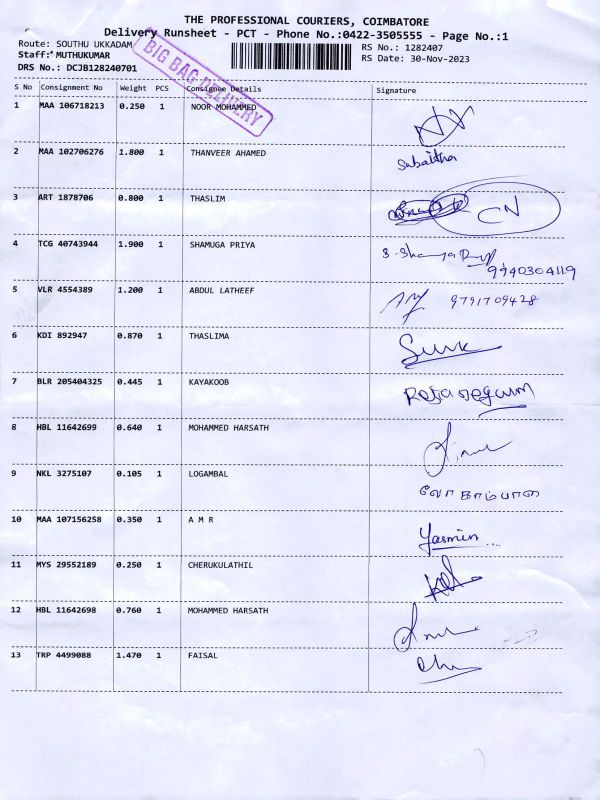 THE PROFESSIONAL COURIERS, COIMBATORE
Delivery Runsheet - PCT - Phone No.:0422-3505555 - Page No.:1
Route: SOUTHU UKKADAM
Staff: MUTHUKUMAR
DRS No.: DCJB128240701
RS No.: 1282407
RS Date: 30-Nov-2023
BIG BAG DELIVERY
S No Consignment No Weight PCS Consignee Details Signature
1 MAA 106718213 0.250 1 NOOR MOHAMMED
2 MAA 102706276 1.800 1 THANVEER AHAMED Subaitha
3 ART 1878706 0.800 1 THASLIM CN
4 TCG 40743944 1.900 1 SHAMUGA PRIYA
9940304119
5 VLR 4554389 1.200 1 ABDUL LATHEEF 9791709428
6 KDI 892947 0.870 1 THASLIMA
7 BLR 205404325 0.445 1 KAYAKOOB
8 HBL 11642699 0.640 1 MOHAMMED HARSATH
9 NKL 3275107 0.105 1 LOGAMBAL லோகாம்பாள
10 MAA 107156258 0.350 1 A M R Yasmin
11 MYS 29552189 0.250 1 CHERUKULATHIL
12 HBL 11642698 0.760 1 MOHAMMED HARSATH
13 TRP 4499088 1.470 1 FAISAL